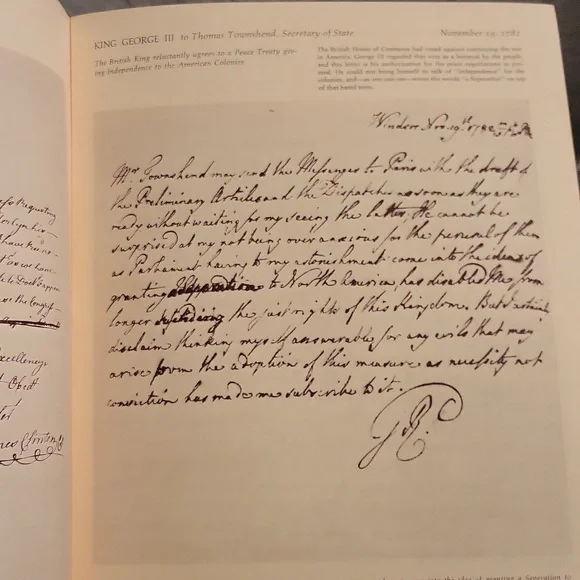 KING GEORGE III to Thomas Townshend, Secretary of State
November 19, 1782
The British King reluctantly agrees to a Peace Treaty giv-
ing independence to the American Colonies
The British House of Commons had voted against continuing the war
in America. George III regarded this vote as a betrayal by the people,
and this letter is his authorization for the peace negotiations to pro-
ceed. He could not bring himself to talk of "independence" for the
colonies, and—as one can see—wrote the words "a Separation" on top
of that hated term.
Windsor Novr. 19th. 1782
Mr. Townshend may send the Messenger to Paris with the draft of
the Preliminary Articles and the Dispatches as soon as they are
ready without waiting for my seeing the latter. He cannot be
surprised at my not being over anxious for the perusal of them
as Parliament having to my astonishment come into the ideas of
granting a Separation to North America has disabled Me from
longer defending the just rights of this Kingdom. But I certainly
disclaim thinking myself answerable for any evils that may
arise from the adoption of this measure as necessity not
conviction has made me subscribe to it.
GR.
Requesting
have
Excellency
Obed
Clinton
into the idea of granting a Separation to